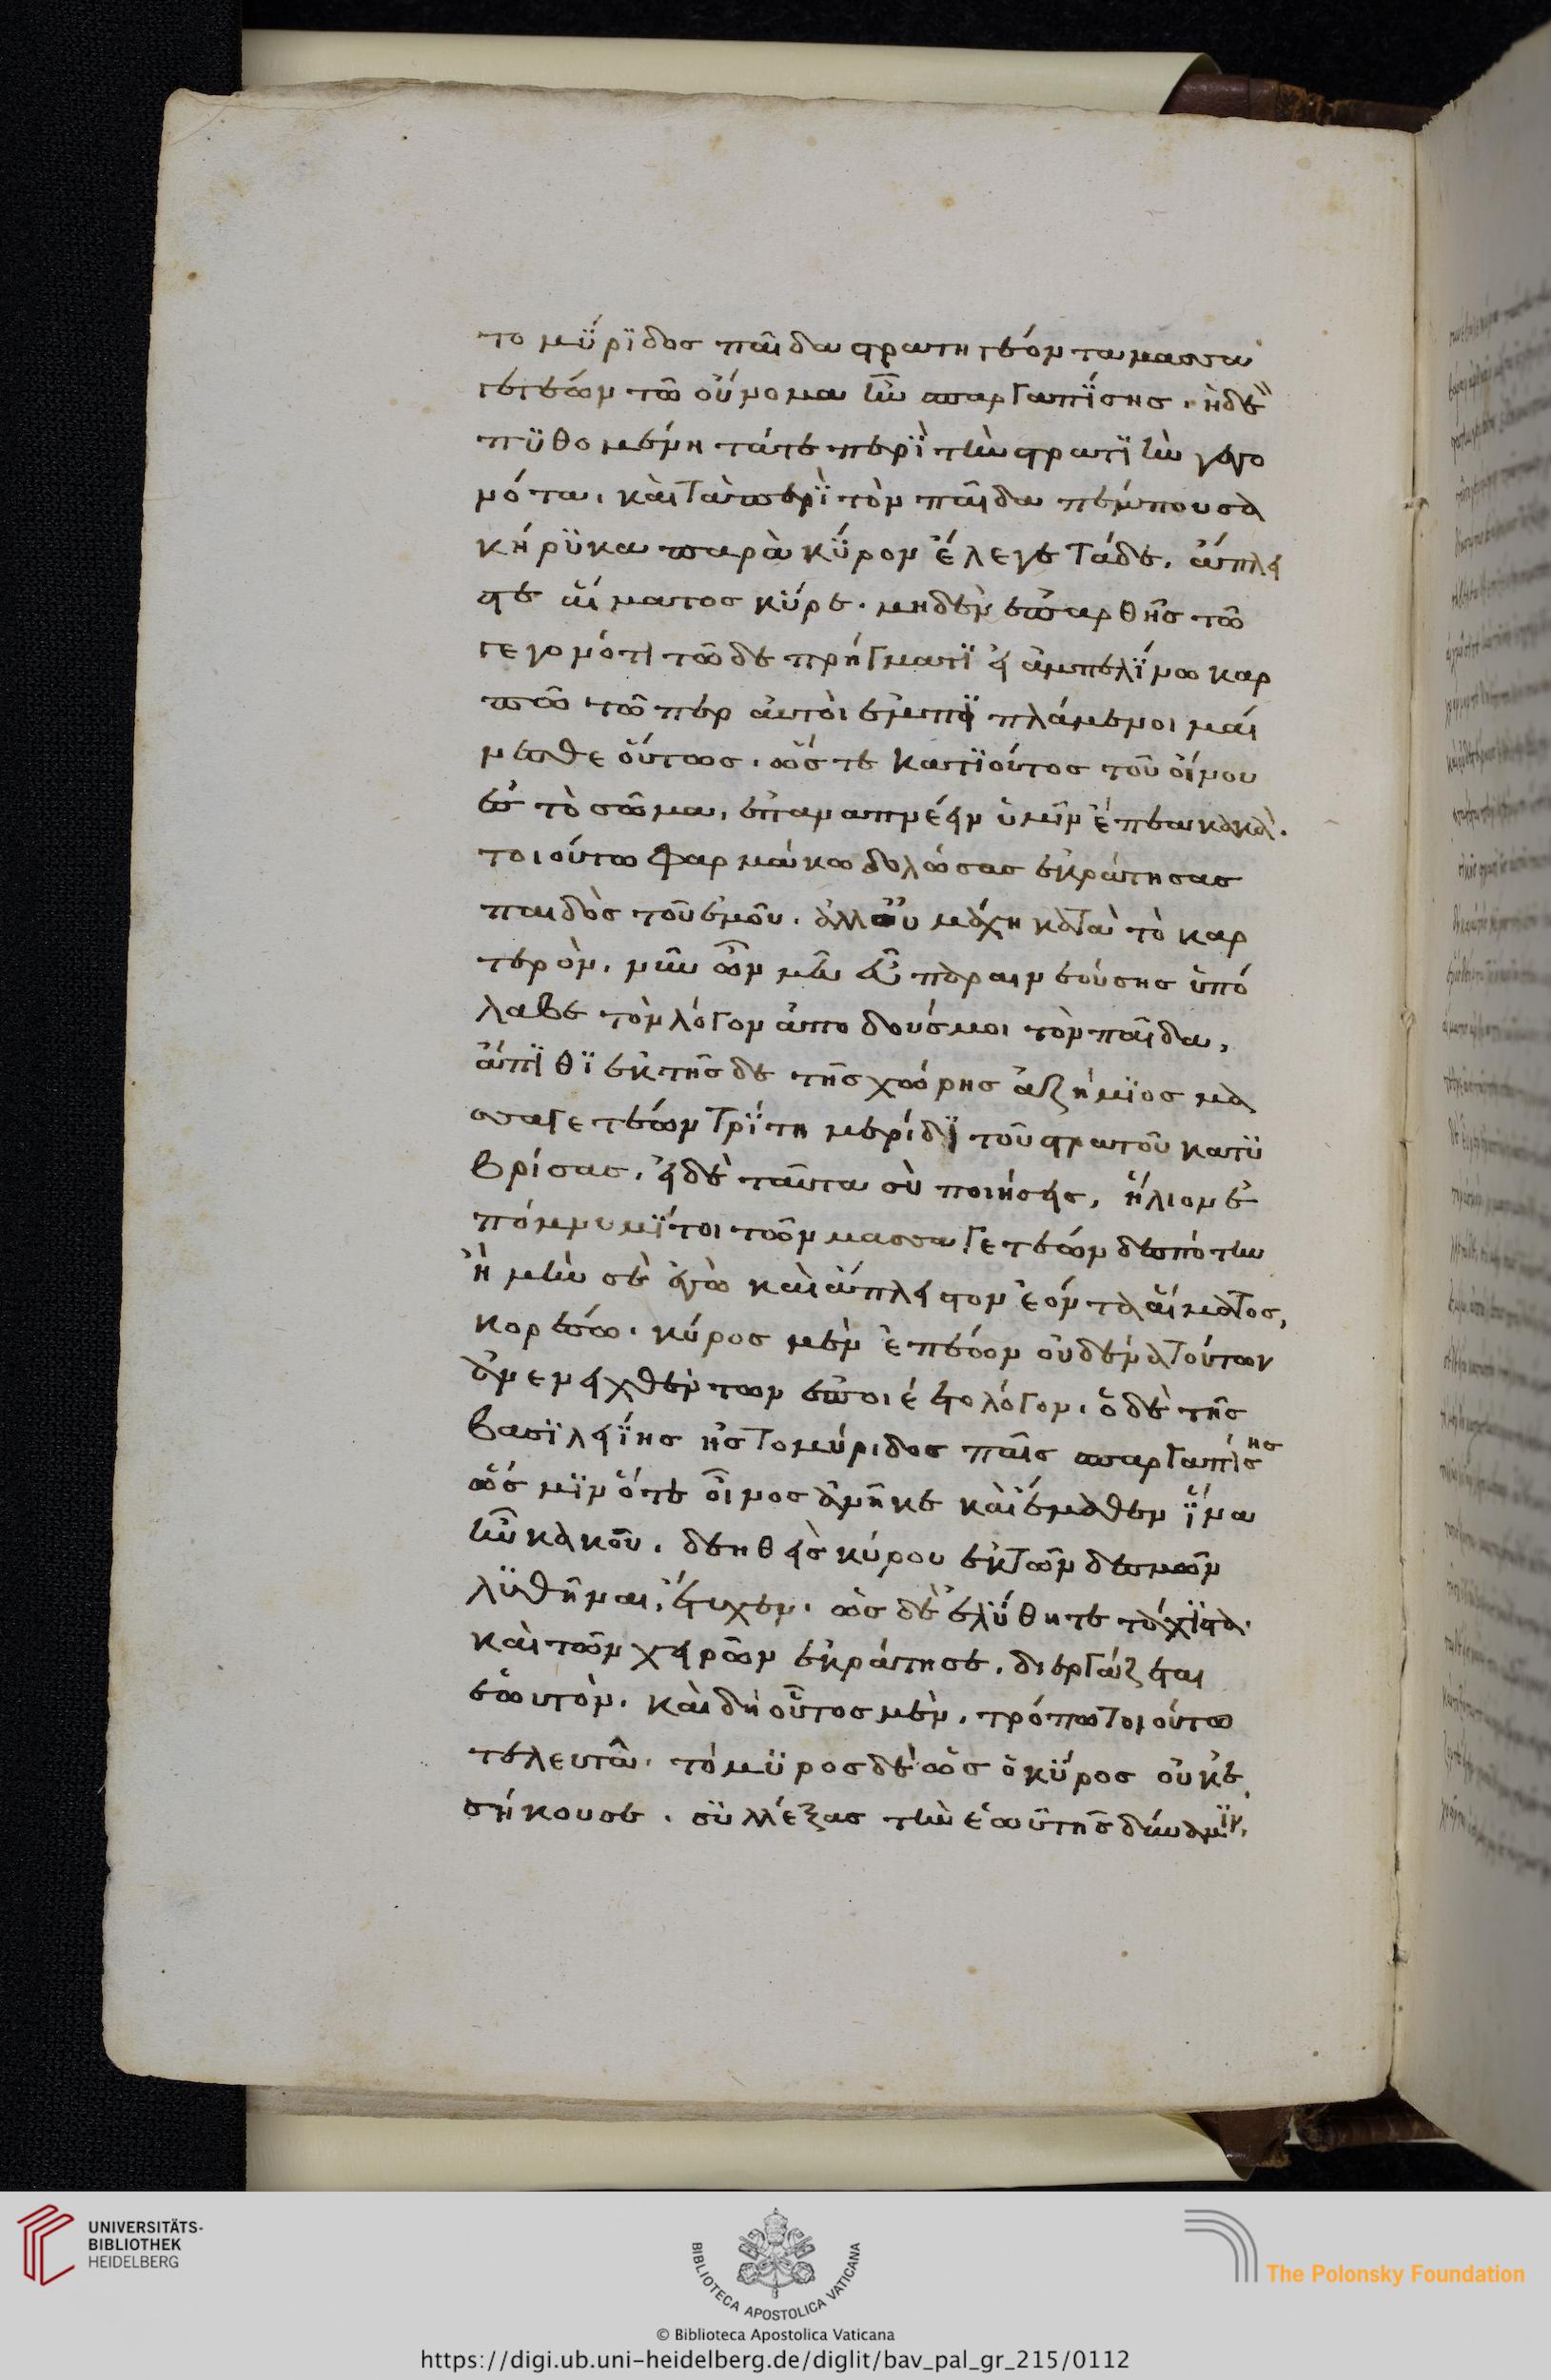 τομύριδος παῖδα στρατηγέοντα μασσα
γετέων τῶ οὔνομα ἦν σπαργαπίσης. ἡ δὲ
πυθομένη τά τε περὶ τὴν στρατιὴν γεγο
νότα. καὶ τὰ περὶ τὸν παῖδα πέμπουσα
κήρυκα παρὰ κῦρον ἔλεγε τάδε. ἄπλη
στε αἵματος κῦρε. μηδὲν ἐπαρθῆς τῶ
γεγονότι τῶδε πρήγματι εἰ ἀμπελίνω καρ
πῶ τῶ περ αὐτοὶ ἐμπιπλάμενοι μαί
νεσθε οὕτως. ὥστε κατιόντος τοῦ οἴνου
ἐς τὸ σῶμα, ἐπαναπλέειν ὑμῖν ἔπεα κακά.
τοιούτω φαρμάκω δολώσας ἐκράτησας
παιδὸς τοῦ ἐμοῦ. ἀλλ' οὐ μάχη κατὰ τὸ καρ
τερόν. νῦν ὦν μευ εὖ παραινεούσης ὑπό
λαβε τὸν λόγον ἀποδούς μοι τὸν παῖδα,
ἄπιθι ἐκ τῆσδε τῆς χώρης ἀζήμιος μα
σσαγετέων τρίτη μερίδι τοῦ στρατοῦ κατυ
βρίσας. εἰ δὲ ταῦτα σὺ ποιήσεις, ἥλιον ἐ
πόμνυμί τοι τῶν μασσαγετέων δεσπότην
ἦ μήν σε ἐγὼ καὶ ἄπληστον ἐόντα αἵματος,
κορέσω. κῦρος μὲν ἐπέων οὐδένα τούτων
ἀνενειχθέντων ἐποιέετο λόγον. ὁ δὲ τῆς
βασιληίης τῆς τομύριδος παῖς σπαργαπίσης
ὥς μιν ὅτε οἶνος ἀνῆκε καὶ ἔμαθεν ἵνα
ἦν κακοῦ. δεηθεὶς κύρου ἐκ τῶν δεσμῶν
λυθῆναι, ἔτυχεν. ὡς δὲ ἐλύθη τε τάχιστα
καὶ τῶν χειρῶν ἐκράτησε. διεργάζεται
ἑωυτόν. καὶ δὴ οὗτος μὲν, τρόπω τοιούτω
τελευτᾶ. τόμυρος δὲ ὥς ὁ κῦρος οὐκ ἐ
σήκουσε. συλλέξας τὴν ἑωυτῆς δύναμιν,
UNIVERSITÄTS-
BIBLIOTHEK
HEIDELBERG
BIBLIOTECA APOSTOLICA VATICANA
The Polonsky Foundation
© Biblioteca Apostolica Vaticana
https://digi.ub.uni-heidelberg.de/diglit/bav_pal_gr_215/0112